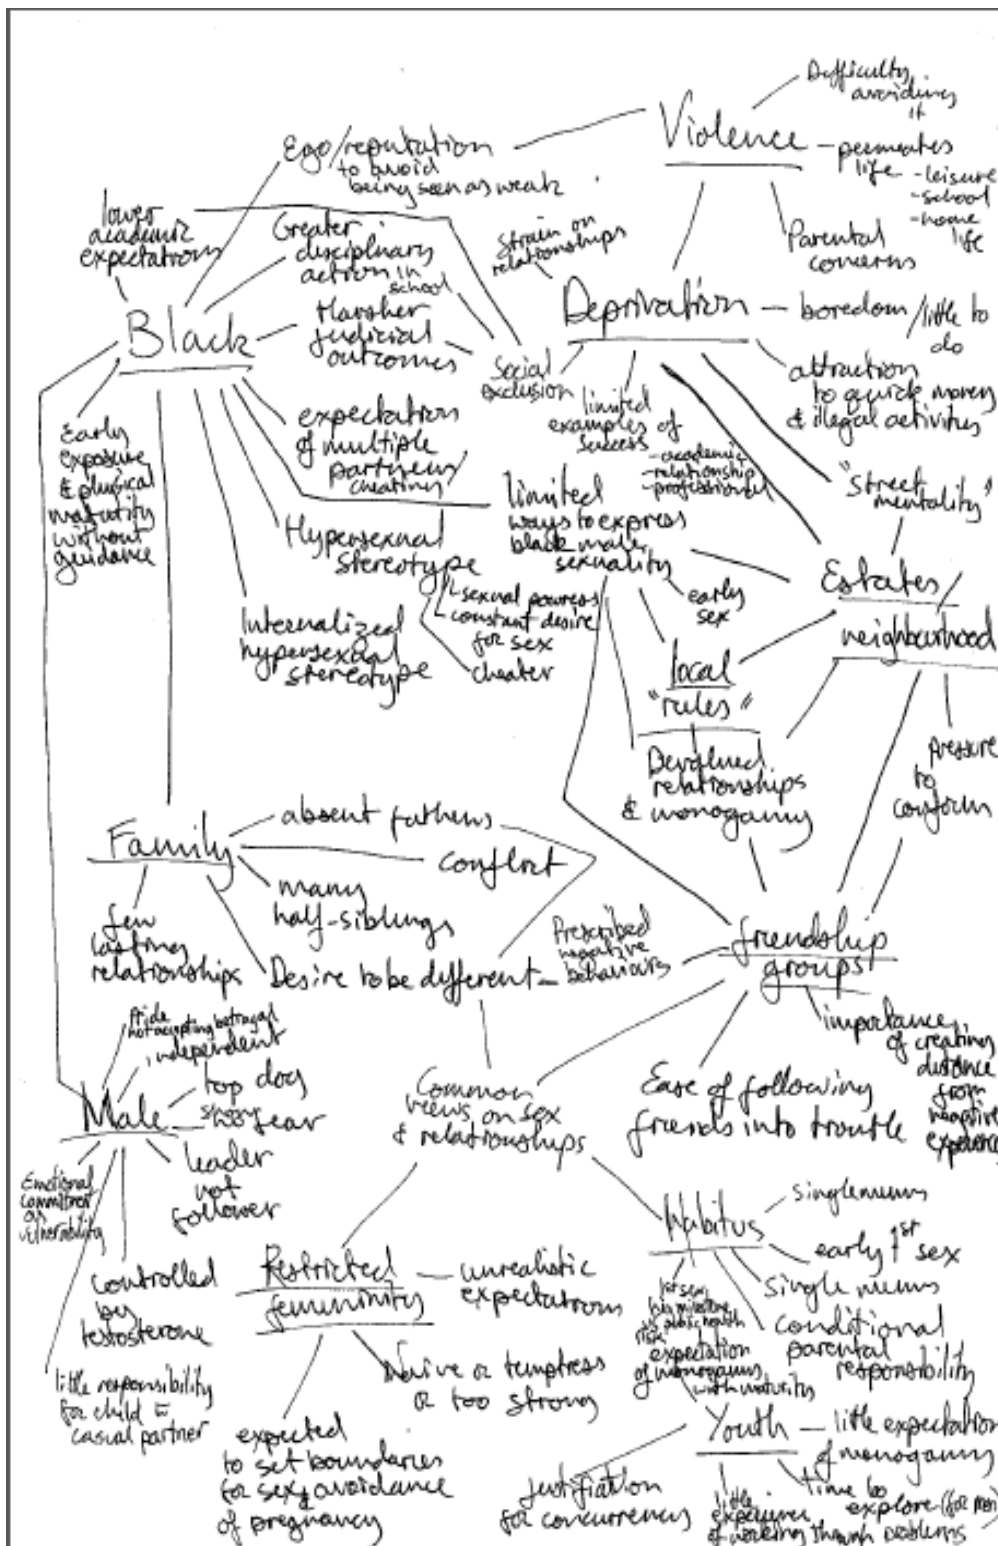 Violence
Difficulty
avoiding
it
permeates
life
-leisure
-school
-home
life
Parental
concerns
Ego/reputation
to avoid
being seen as weak
lower
academic
expectations
Greater
disciplinary
action in
school
Strain on
relationships
Deprivation
boredom/little to
do
attraction
to quick money
& illegal activities
Black
Harsher
judicial
outcomes
Social
exclusion
limited
examples of
success
-academic
-relationship
-professional
"Street
mentality"
Early
exposure
& physical
maturity
without
guidance
expectation
of multiple
partners/
cheating
limited
ways to express
black male
sexuality
early
sex
Hypersexual
stereotype
sexual prowess
constant desire
for sex
cheater
Internalized
hypersexual
stereotype
Estates/
neighbourhood
local
"rules"
Devalued
relationships
& monogamy
pressure
to
conform
Family
absent fathers
conflict
many
half-siblings
few
lasting
relationships
Desire to be different
Prescribed
negative
behaviours
friendship
groups
importance
of creating
distance
from
negative
experience
Ease of following
friends into trouble
Common
views on sex
& relationships
Pride
not accepting betrayal
independent
top dog
show
no fear
Male
leader
not
follower
Emotional
commitment
or
vulnerability
controlled
by
testosterone
little responsibility
for child
casual partner
Restricted
femininity
unrealistic
expectations
Naive or temptress
or too strong
expected
to set boundaries
for sex & avoidance
of pregnancy
Habitus
single mums
early 1st sex
single mums
conditional
parental
responsibility
1st sex
big milestone
vs public health
risk
expectation
of monogamy
with maturity
Youth
little expectation
of monogamy
time to
explore (for men)
little
experience
of working through problems
justifiation
for concurrency